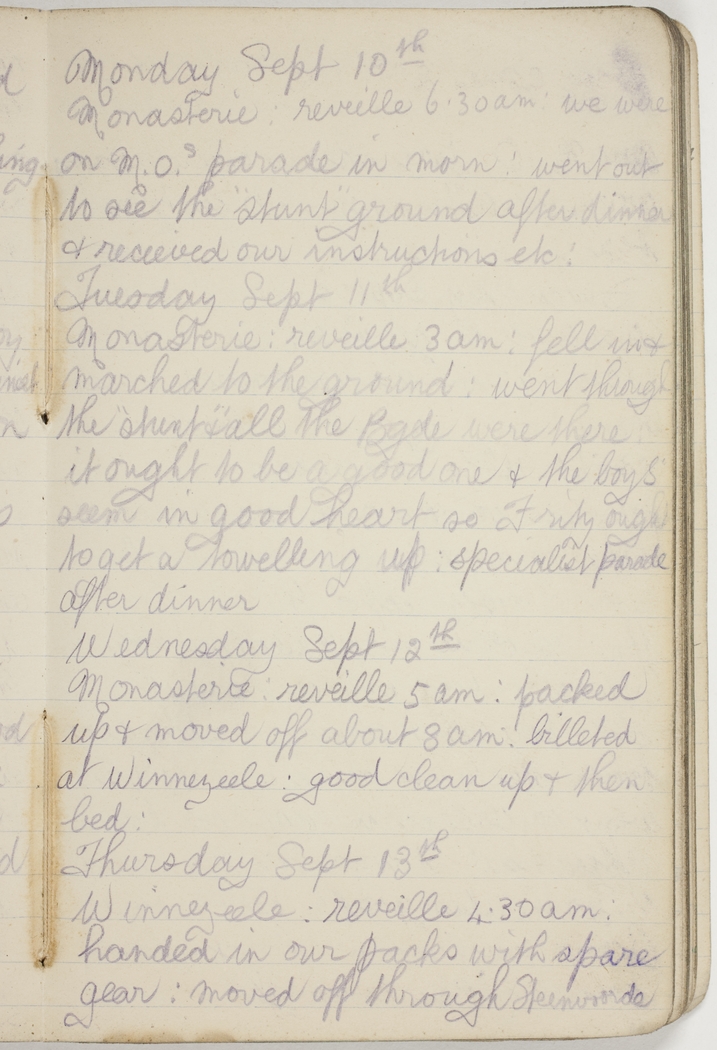 Monday Sept 10th
Monasterie : reveille 6.30am : we were
on M.O.s parade in morn : went out
to see the "stunt" ground after dinner
& receieved our instructions etc :
Tuesday Sept 11th
Monasterie : reveille 3am : fell in &
marched to the ground : went through
the "stunt" & all the Bgde were there :
it ought to be a good one & the boys
seem in good heart so Fritz ought
to get a towelling up : specialist parade
after dinner
Wednesday Sept 12th
Monasterie : reveille 5am : packed
up & moved off about 8am : billeted
at Winnezeele : good clean up & then
bed :
Thursday Sept 13th
Winnezeele : reveille 4.30am :
handed in our packs with spare
gear : moved off through Steenvoorde